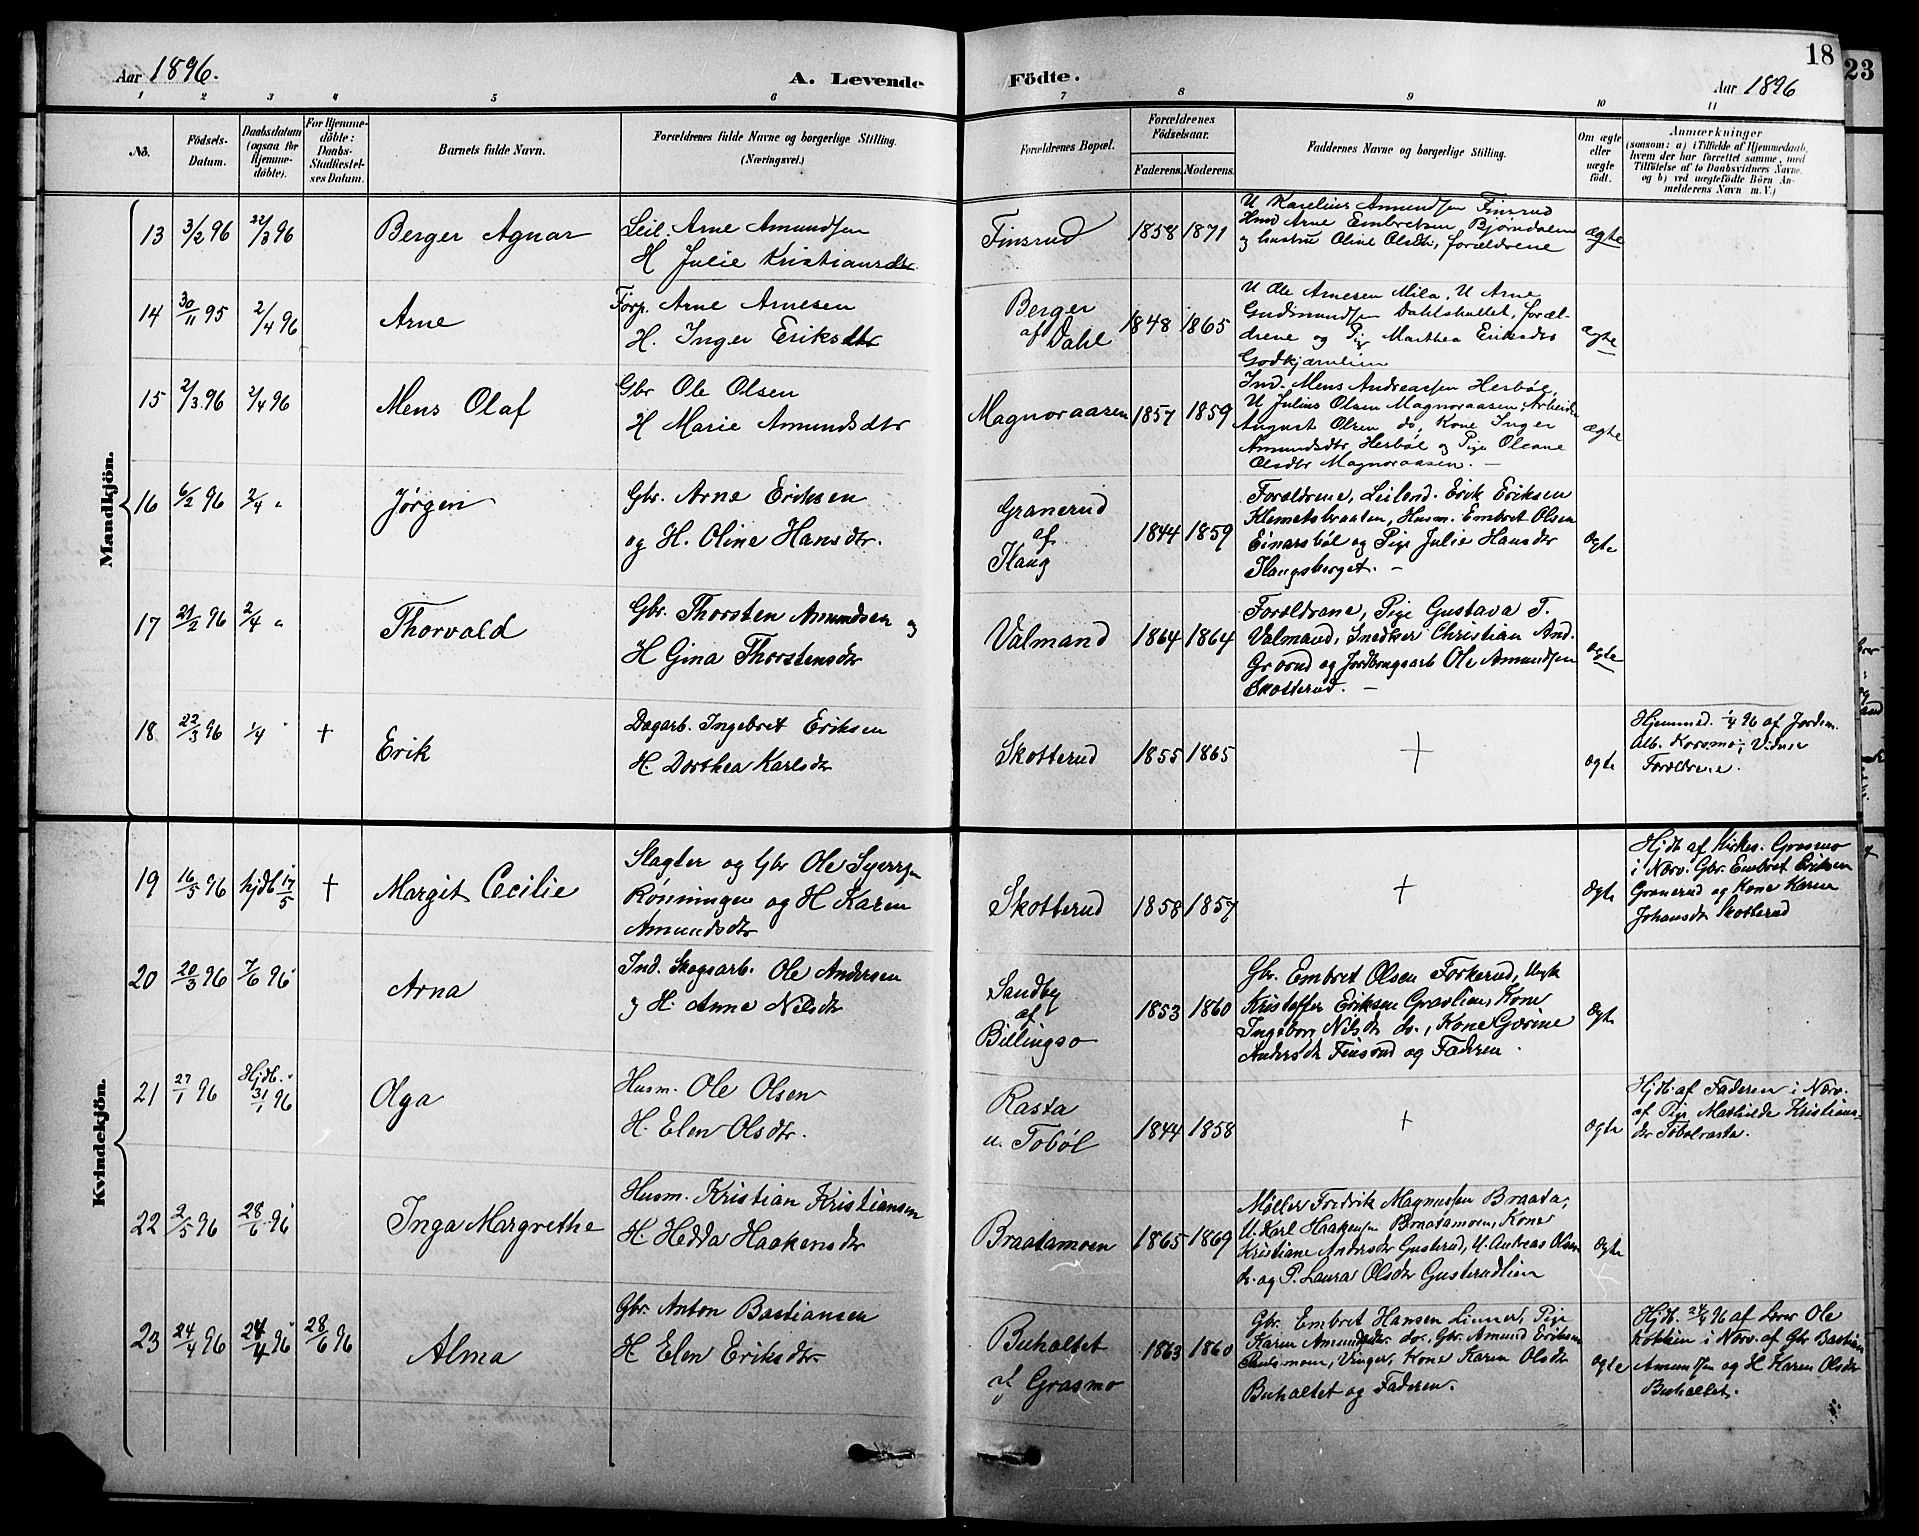 Aar 1896.
A. Levende
Födte.
Aar 1896
18
23
1 2 3 4 5 6 7 8 9 10 11
No.
Födsels-
Datum.
Daabsdatum
(ogsaa for
Hjemme-
döbte).
For Hjemme-
döbte:
Daabs-
Stadfæstel-
ses Datum.
Barnets fulde Navn.
Forældrenes fulde Navne og borgerlige Stilling.
(Næringsvei.)
Forældrenes Bopæl.
Forældrenes
Födselsaar.
Faderens. Moderens.
Faddernes Navne og borgerlige Stilling.
Om ægte
eller
uægte
födt.
Anmærkninger
(saasom: a) i Tilfælde af Hjemmedaab,
hvem der har forrettet samme, med
Tilföielse af to Daabsvidners Navne,
og b) ved uægtefödte Börn An-
melderens Navn m. V.)
Mandkjön.
13 3/2 96 22/3 96 Berger Agnar
Leil. Arne Amundsen
H Julie Kristiansdtr
Finsrud 1858 1871
U Karelius Amundsen Finsrud
Husm Arne Embretsen Bjørndalen
og hustru Oline Olsdtr, forældrene
ægte
14 30/11 95 2/4 96 Arne
Forp. Arne Arnesen
H. Inger Eriksdtr
Berger
af Dahl
1848 1865
U Ole Arnesen Mila, U Arne
Gudmundsen Dahlshaltet, foræl-
drene og Pige Marthea Eriksdtr
Godkjærnlien
ægte
15 2/3 96 2/4 96 Mens Olaf
Gbr Ole Olsen
H Marie Amundsdtr
Magnoraasen 1857 1859
Ind. Mens Andreassen Hersbøl,
U Julius Olsen Magnoraasen, Arbeider
August Olsen do, Kone Inger
Amundsdtr Hersbøl og Pige Oleane
Olsdtr Magnoraasen. —
ægte
16 6/2 96 2/4 " Jørgen
Gbr. Arne Eriksen
og H. Oline Hansdtr.
Granerud
af
Haug
1844 1859
Forældrene, Leilend. Erik Eriksen
Klemetsbraaten, Husm. Embret Olsen
Einarsbøl og Pige Julie Hansdtr
Haugsberget. —
ægte
17 21/2 96 2/4 " Thorvald
Gbr. Thorsten Amundsen og
H Gina Thorstensdtr
Valmand 1864 1864
Forældrene, Pige Gustava T.
Valmand, Snedker Christian And.
Grorud og Jordbrugsarb Ole Amundsen
Skotterud. —
ægte
18 22/3 96 1/4 " + Erik
Dagarb. Ingebret Eriksen
H. Dorthea Karlsdtr
Skotterud 1855 1865 + ægte
Hjemmed. 1/4 96 af Jordm.
Alb. Korsmo, Vidner
Forældrene.
Kvindekjön.
19 16/5 96 hjdb 17/5 + Margit Cecilie
Slagter og Gbr Ole
Rønningen og H Karen
Amundsdtr
Skotterud 1858 1857 + ægte
Hjdb af Kirkes. Grasmo
i Nærv. Gbr. Embret Eriksen
Granerud og Kone Karen
Johansdtr Skotterud
20 20/3 96 7/6 96 Arna
Ind. Skogsarb. Ole Andersen
og H. Anne Nilsdtr
Sandby
af
Billingsø
1853 1860
Gbr. Embret Olsen Forkerud, Ungk
Kristoffer Eriksen Gravlien, Kone
Ingeborg Nilsdtr do., Kone Gorine
Andersdtr Finsrud og Faderen.
ægte
21 27/1 96 Hjdb. 31/1 96 Olga
Husm. Ole Olsen
H. Elen Olsdtr.
Rasta
u. Tobøl
1844 1858 + ægte
Hjdb. af Faderen i Nærv.
af Pige Mathilde Kristians-
dtr Tobølrasta.
22 2/5 96 28/6 96 Inga Margrethe
Husm. Kristian Kristiansen
H. Hedda Haakensdtr
Braatamoen 1865 1869
Møller Fredrik Magnussen Braata,
U. Karl Haakensen Braatamoen, Kone
Kristiane Andersdtr Gusterud, U. Andreas Olsen
do. og P. Laura Olsdtr Gusterudlien
ægte
23 24/4 96 24/4 96 28/6 96 Alma
Gbr. Anton Bastiansen
H Elen Eriksdtr.
Buholtet
af Grasmo
1863 1860
Gbr. Embret Hansen Linner, Pige
Karen Amundsdtr do., Gbr. Amund Eriksen
Paulsmoen, Vinger, Kone Karen Olsdtr
Buholtet og Faderen.
ægte
Hjdb. 24/4 96 af Lærer Ole
i Nærv. af Gbr Bastian
Amundsen og H Karen Olsdtr
Buholtet.